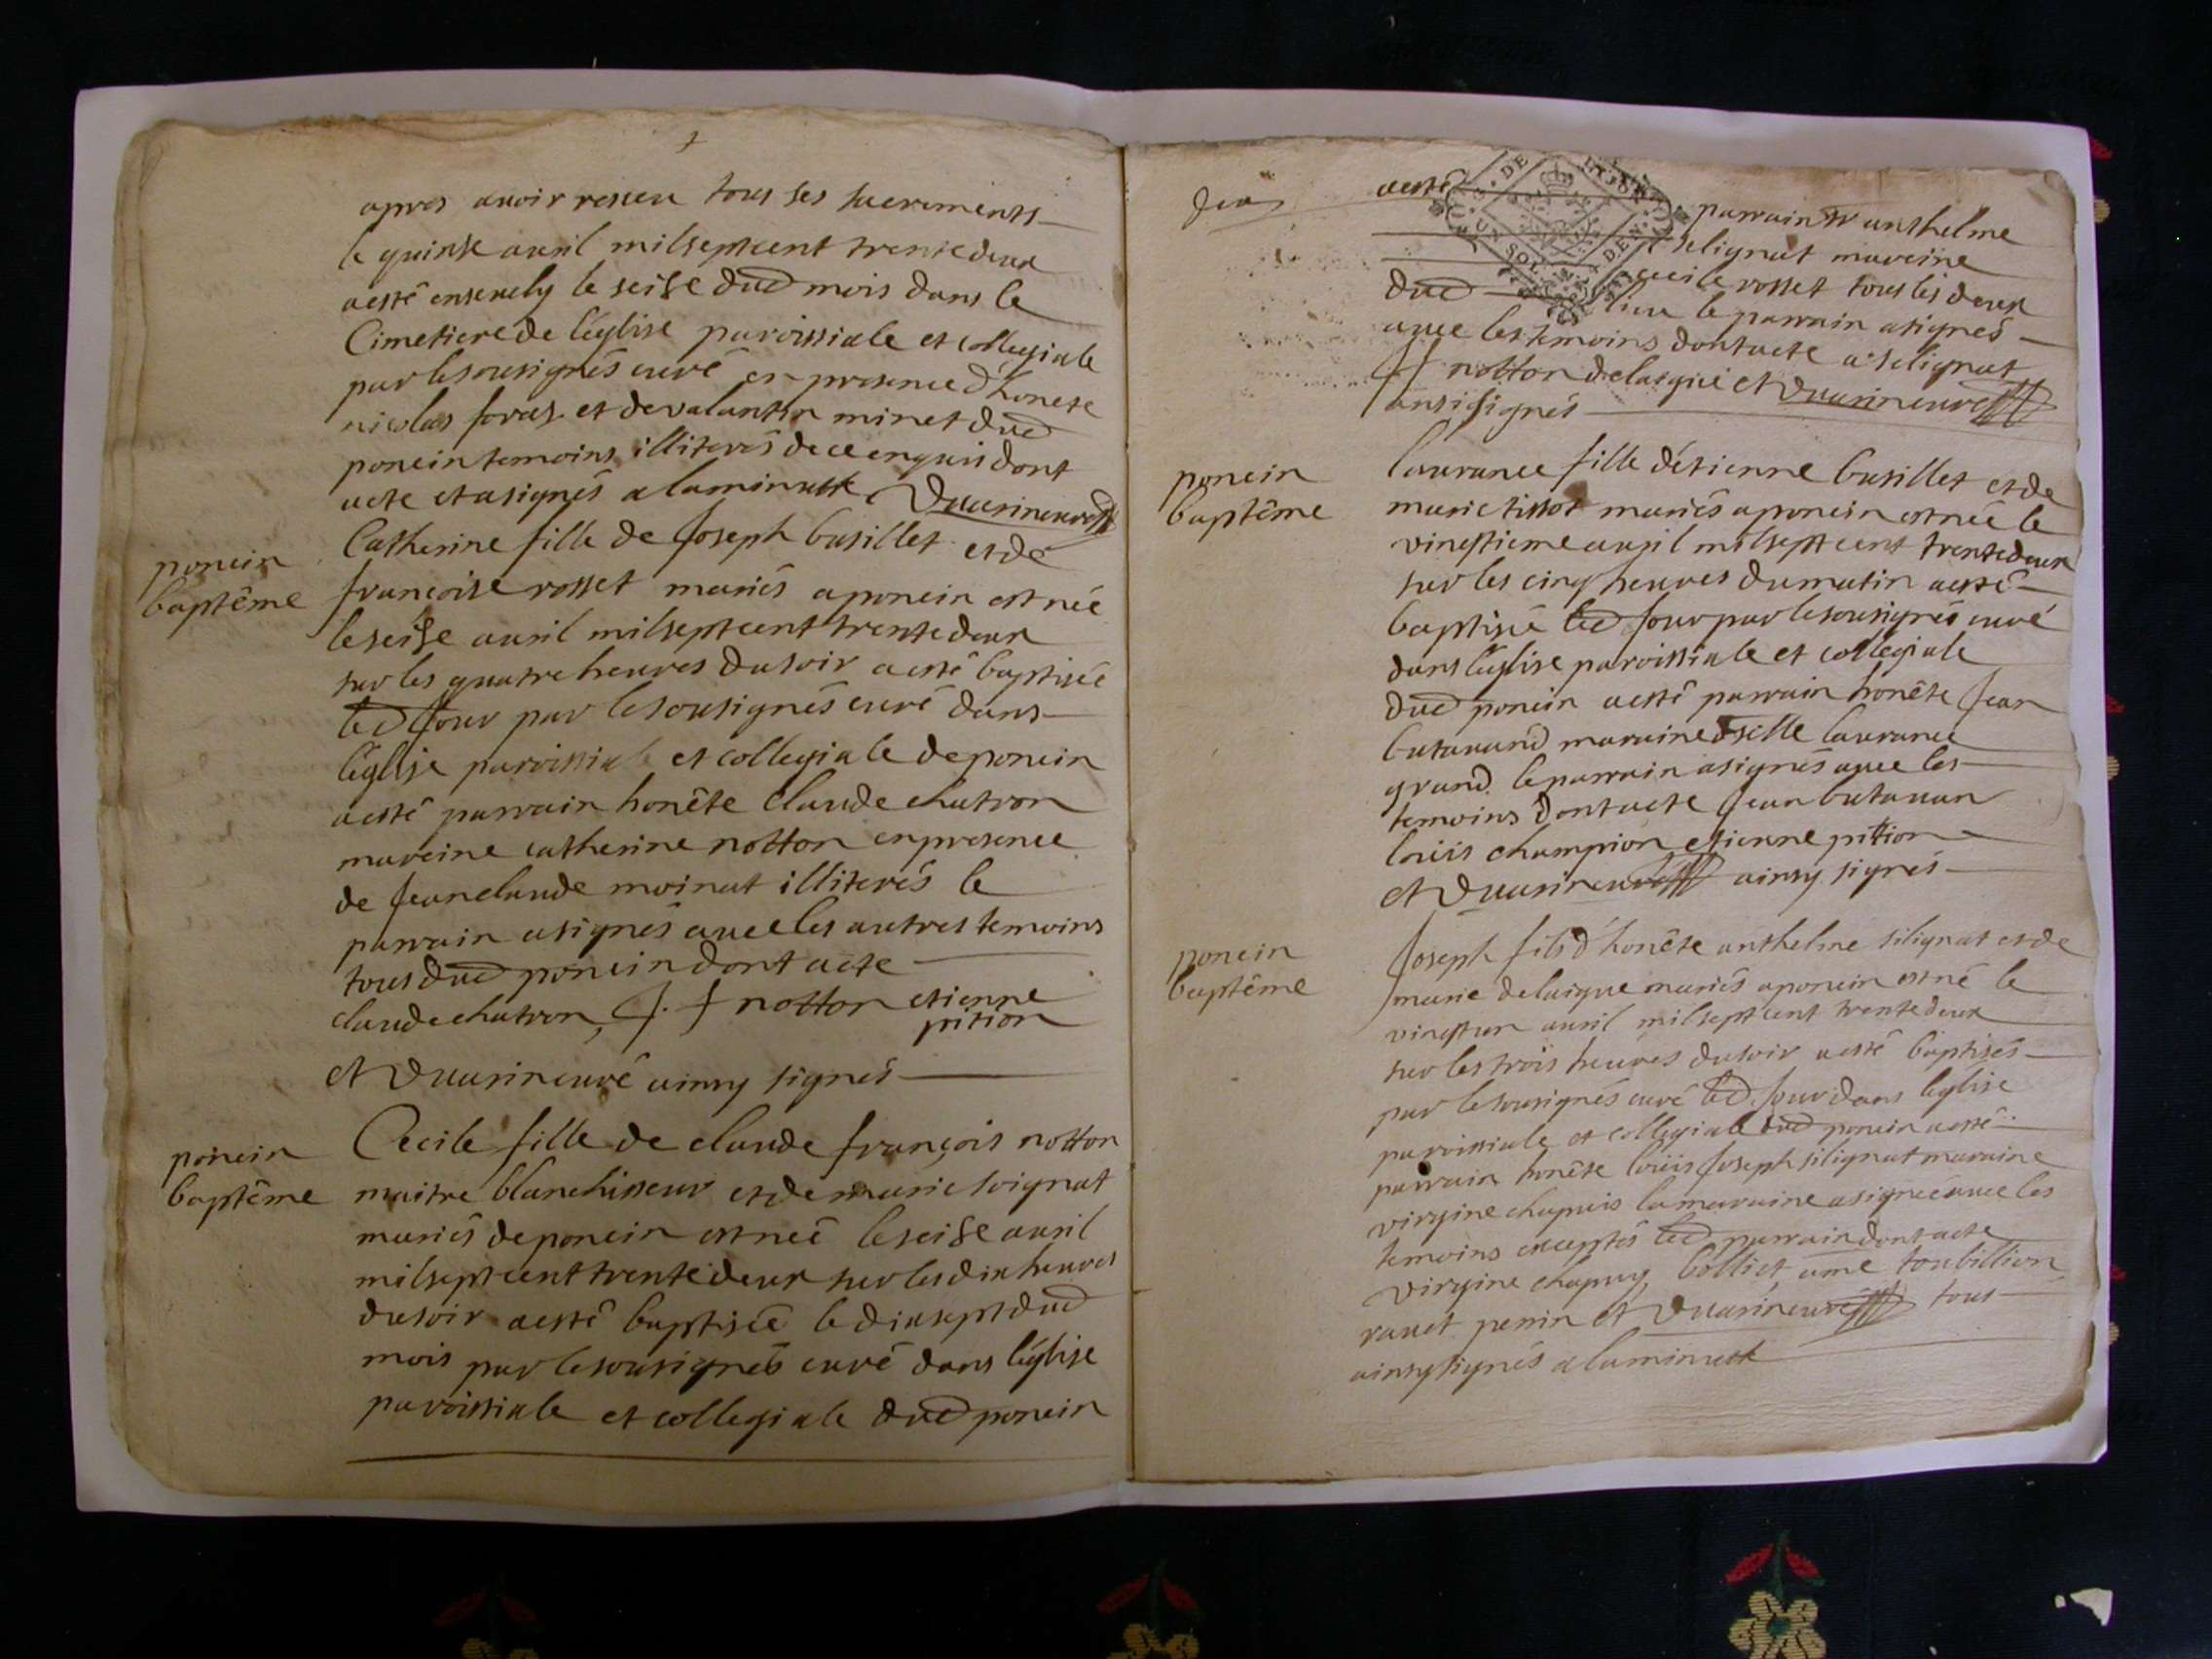 apres auoir resceu tous ses sacrements
le quinse auril mil sept cent trente deux
a esté enseuely le seise dud mois dans le
Cimetiere de l'église paroissiale et collegiale
par le sousignés curé en presence d'honete
nicolas foras et de valantin minet dud
poncin temoins illiterés de ce enquis dont
acte et a signés a la minutte Duuarin curé
poncin
baptême
Catherine fille de Joseph busillet et de
francoise rosset mariés a poncin est née
le seise auril mil sept cent trente deux
sur les quatre heures du soir a esté baptisée
led Jour par le sousignés curé dans
l'église paroissiale et collegiale de poncin
a esté parrain honête Claude chatron
mareine catherine notton en presence
de Jean claude moinat illiterés le
parrain a signés auec les autres temoins
tous dud poncin dont acte
claude chatron, J. f notton etienne
pition
et Duuarin curé ainsy signés
poncin
baptême
Cecile fille de claude françois notton
maitre blanchisseur et de marie soignat
mariés de poncin est née le seise auril
mil sept cent trente deux sur les dix heures
du soir a esté baptisée le dix sept dud
mois par le sousignés curé dans l'église
paroissiale et collegiale dud poncin
deux
a esté parrain Sr anthelme
selignat mareine
dud cecile rosset tous les deux
lieu le parrain a signés
auec les temoins dont acte a. selignat
J f notton delaigue et Duuarin curé
ansi signés
poncin
baptême
laurance fille d'étienne busillet et de
marie tissot mariés a poncin est née le
vingtieme auril mil sept cent trente deux
sur les cinq heures du matin a esté
baptisée led Jour par le sousignés curé
dans l'église paroissiale et collegiale
dud poncin a esté parrain honête Jean
butauand maraine dselle laurance
grand. le parrain a signés auec les
temoins dont acte Jean butauan
loüis champion etienne pittion
et Duuarin curé ainsy signés
poncin
baptême
Joseph fils d'honête anthelme silignat et de
marie delaigue mariés a poncin est né le
vingt un auril mil sept cent trente deux
sur les trois heures du soir a esté baptisés
par le sousignés curé led Jour dans l'église
paroissiale et collegiale dud poncin a esté
parrain honête loüis Joseph silignat maraine
virgine chapuis la maraine a signée auec les
temoins exceptés led parrain dont acte
virgine chapuy, bolliet, ame toubillion
rauet perrin et Duuarin curé tous
ainsy signés a la minutte